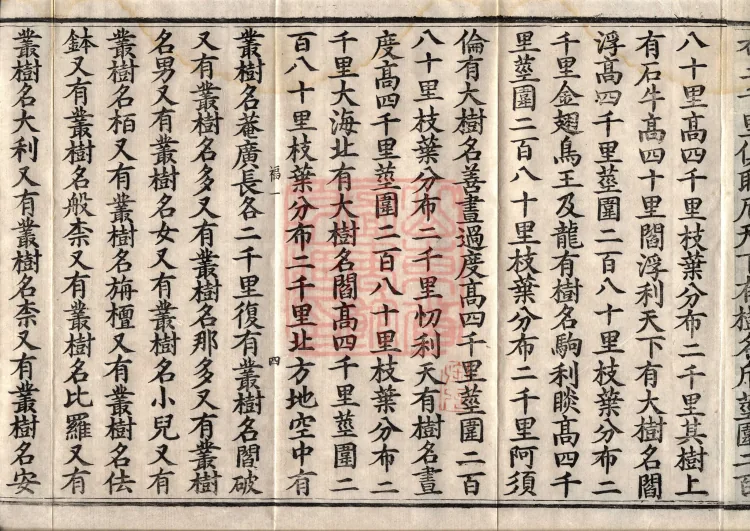 八十里高四千里枝葉分布二千里其樹上
有石牛高四十里閻浮利天下有大樹名閻
浮高四千里莖圍二百八十里枝葉分布二
千里金翅鳥王及龍有樹名駒利睒高四千
里莖圍二百八十里枝葉分布二千里阿須
倫有大樹名善晝過度高四千里莖圍二百
八十里枝葉分布二千里忉利天有樹名晝
度高四千里莖圍二百八十里枝葉分布二
千里大海北有大樹名閻高四千里莖圍二
百八十里枝葉分布二千里北方地空中有
福一 四
叢樹名菴廣長各二千里復有叢樹名閻破
又有叢樹名多又有叢樹名那多又有叢樹
名男又有叢樹名女又有叢樹名小兒又有
叢樹名栢又有叢樹名栴檀又有叢樹名佉
鉢又有叢樹名般柰又有叢樹名比羅又有
叢樹名大利又有叢樹名柰又有叢樹名安